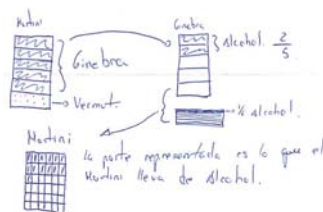 Martini
Ginebra
Ginebra
Alcohol. 2/5
Vermut.
alcohol
Martini
la parte representada es lo que el
Martini lleva de Alcohol.